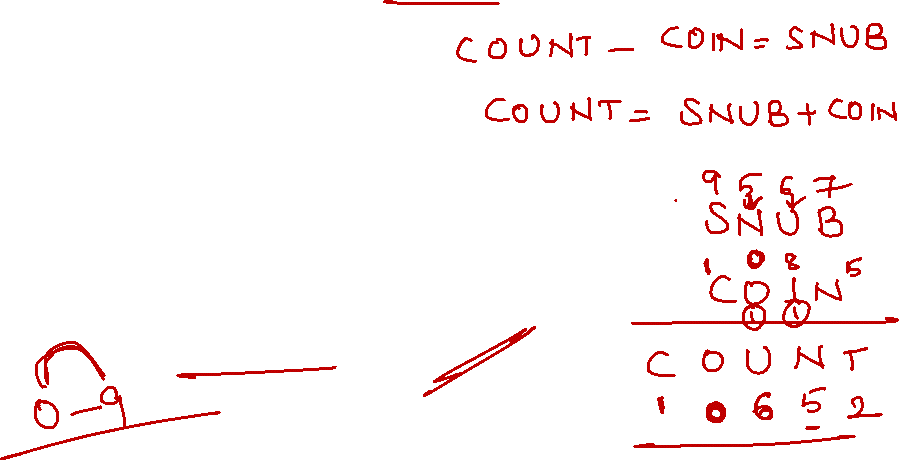 COUNT - COIN = SNUB
COUNT = SNUB + COIN
9 5 6 7
SNUB
1 0 8 5
COIN
1 1
COUNT
1 0 6 5 2
0 - 9